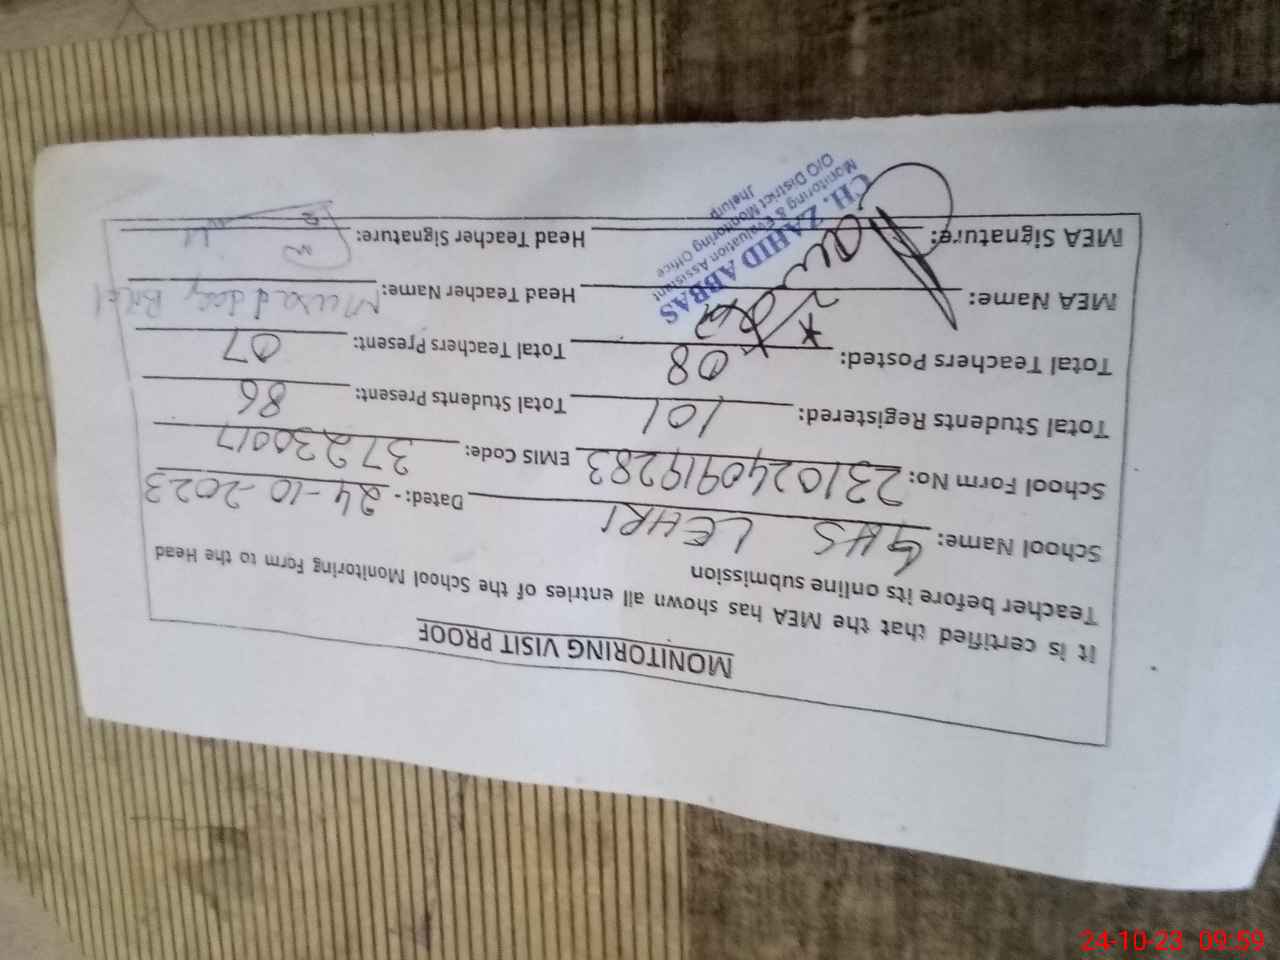 MONITORING VISIT PROOF
It is certified that the MEA has shown all entries of the School Monitoring Form to the Head
Teacher before its online submission
School Name: GHS LEHRI Dated:- 24-10-2023
School Form No: 2310240919283 EMIS Code: 37230017
Total Students Registered: 101 Total Students Present: 86
Total Teachers Posted: 08 Total Teachers Present: 07
MEA Name: Head Teacher Name: Musaddaq
MEA Signature: Head Teacher Signature:
CH. ZAHID ABBAS
Monitoring & Evaluation Assistant
O/O District Monitoring Office
Jhelum
24-10-23 09:59